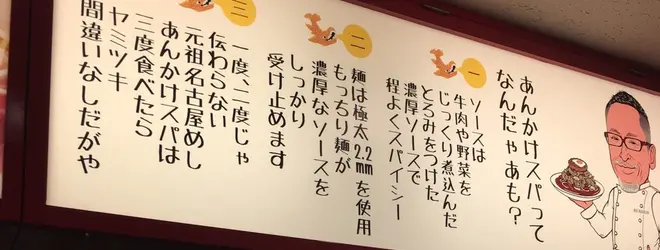 あんかけスパって
なんだゃあも？
一
ソースは
牛肉や野菜を
じっくり煮込んだ
とろみをつけた
濃厚ソースで
程よくスパイシー
二
麺は極太2.2mmを使用
もっちり麺が
濃厚なソースを
しっかり
受け止めます
三
一度、二度じゃ
伝わらない
元祖名古屋めし
あんかけスパは
三度食べたら
ヤミツキ
間違いなしだがや